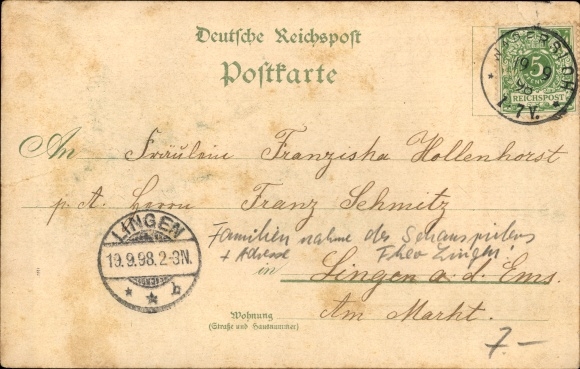 Deutsche Reichspost
Postkarte
19 9
98
1 7V.
5
REICHSPOST
An Fräulein Franziska Hollenhorst
p. A. Herrn Franz Schmitz
LINGEN
19.9.98.2-3N.
(EMS)
* * b
Familienname des Schauspielers
+ Adresse Theo Lingen!
in Lingen a. d. Ems.
Wohnung
(Straße und Hausnummer)
Am Markt.
7.-